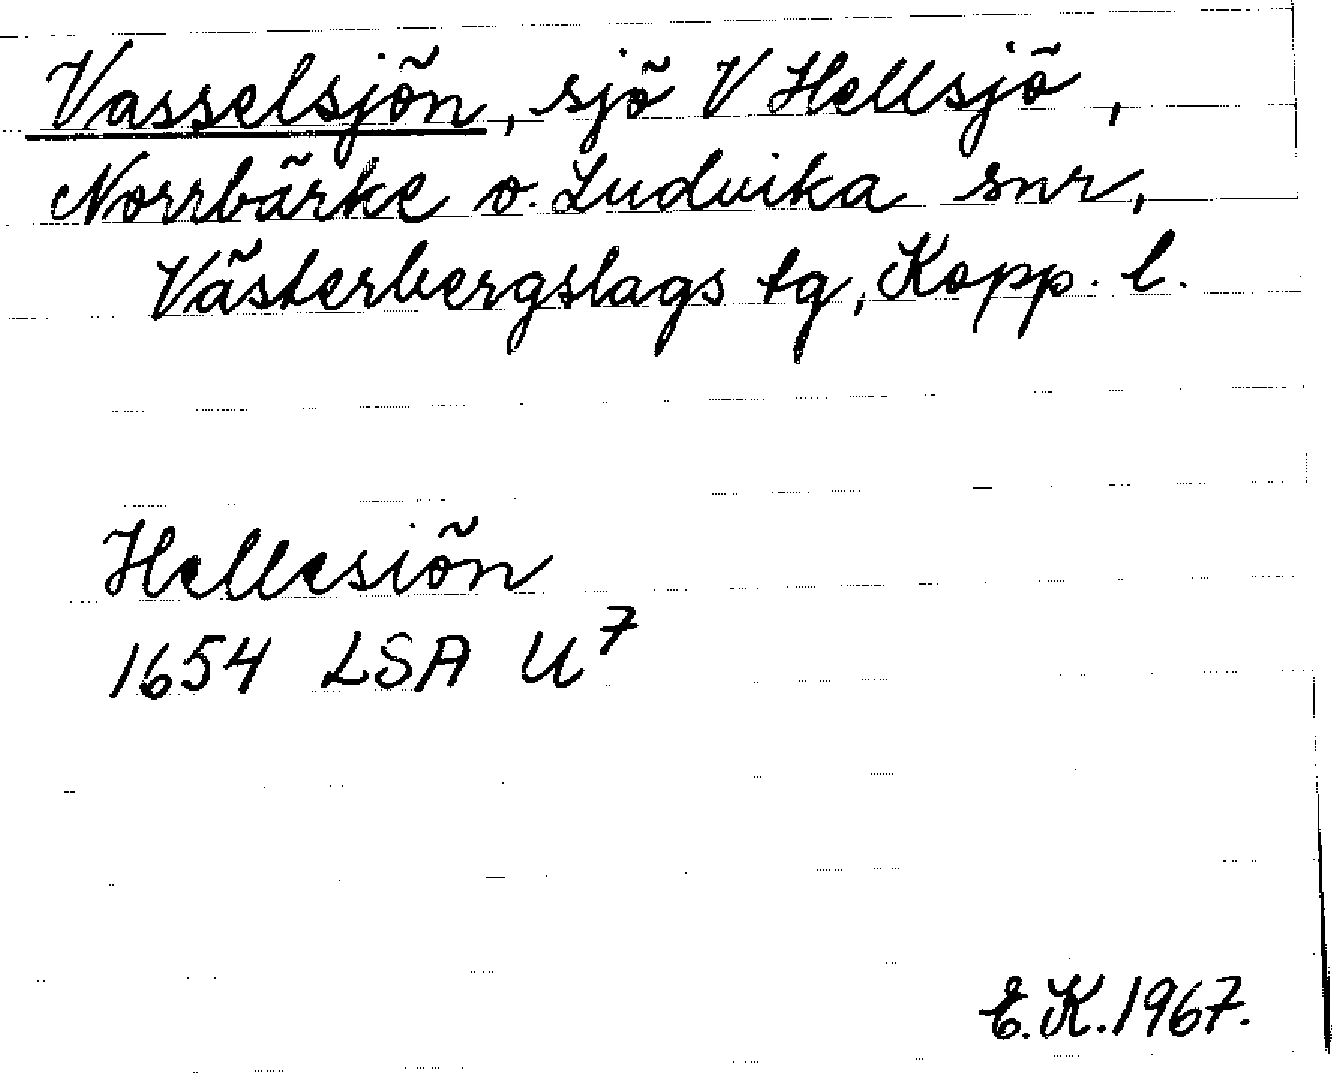 Vasselsjön, sjö V Hellsjö,
Norrbärke o. Ludvika snr,
Västerbergslags tg, Kopp. l.
Hellesiön
1654 LSA U⁷
E.K.1967.